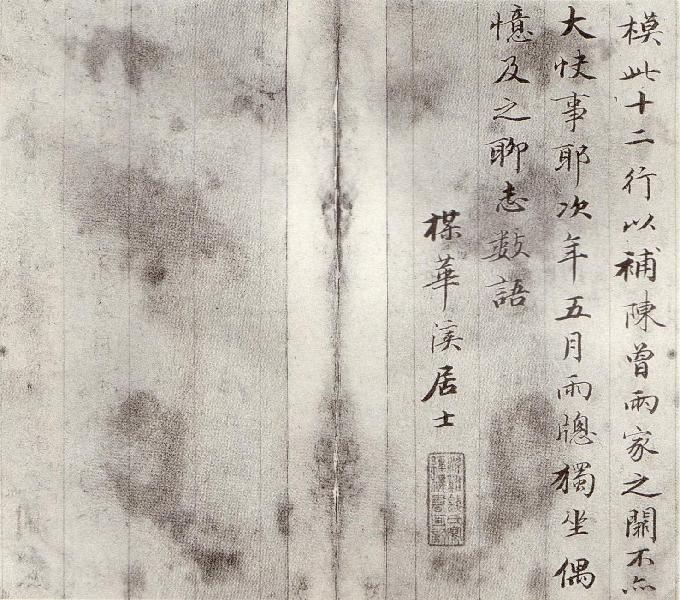 模此十二行以補陳曾兩家之闕不亦
大快事耶次年五月雨牕獨坐偶
憶及之聊志數語
楳華溪居士